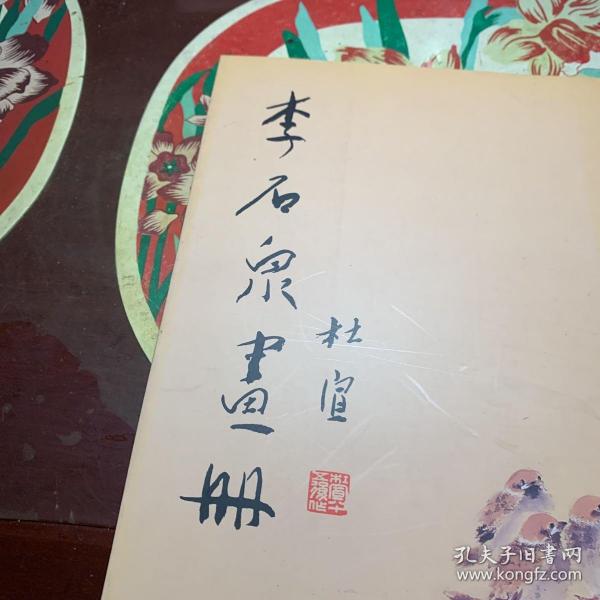 李石泉畫册
杜宣
孔夫子旧书网
www.kongfz.com